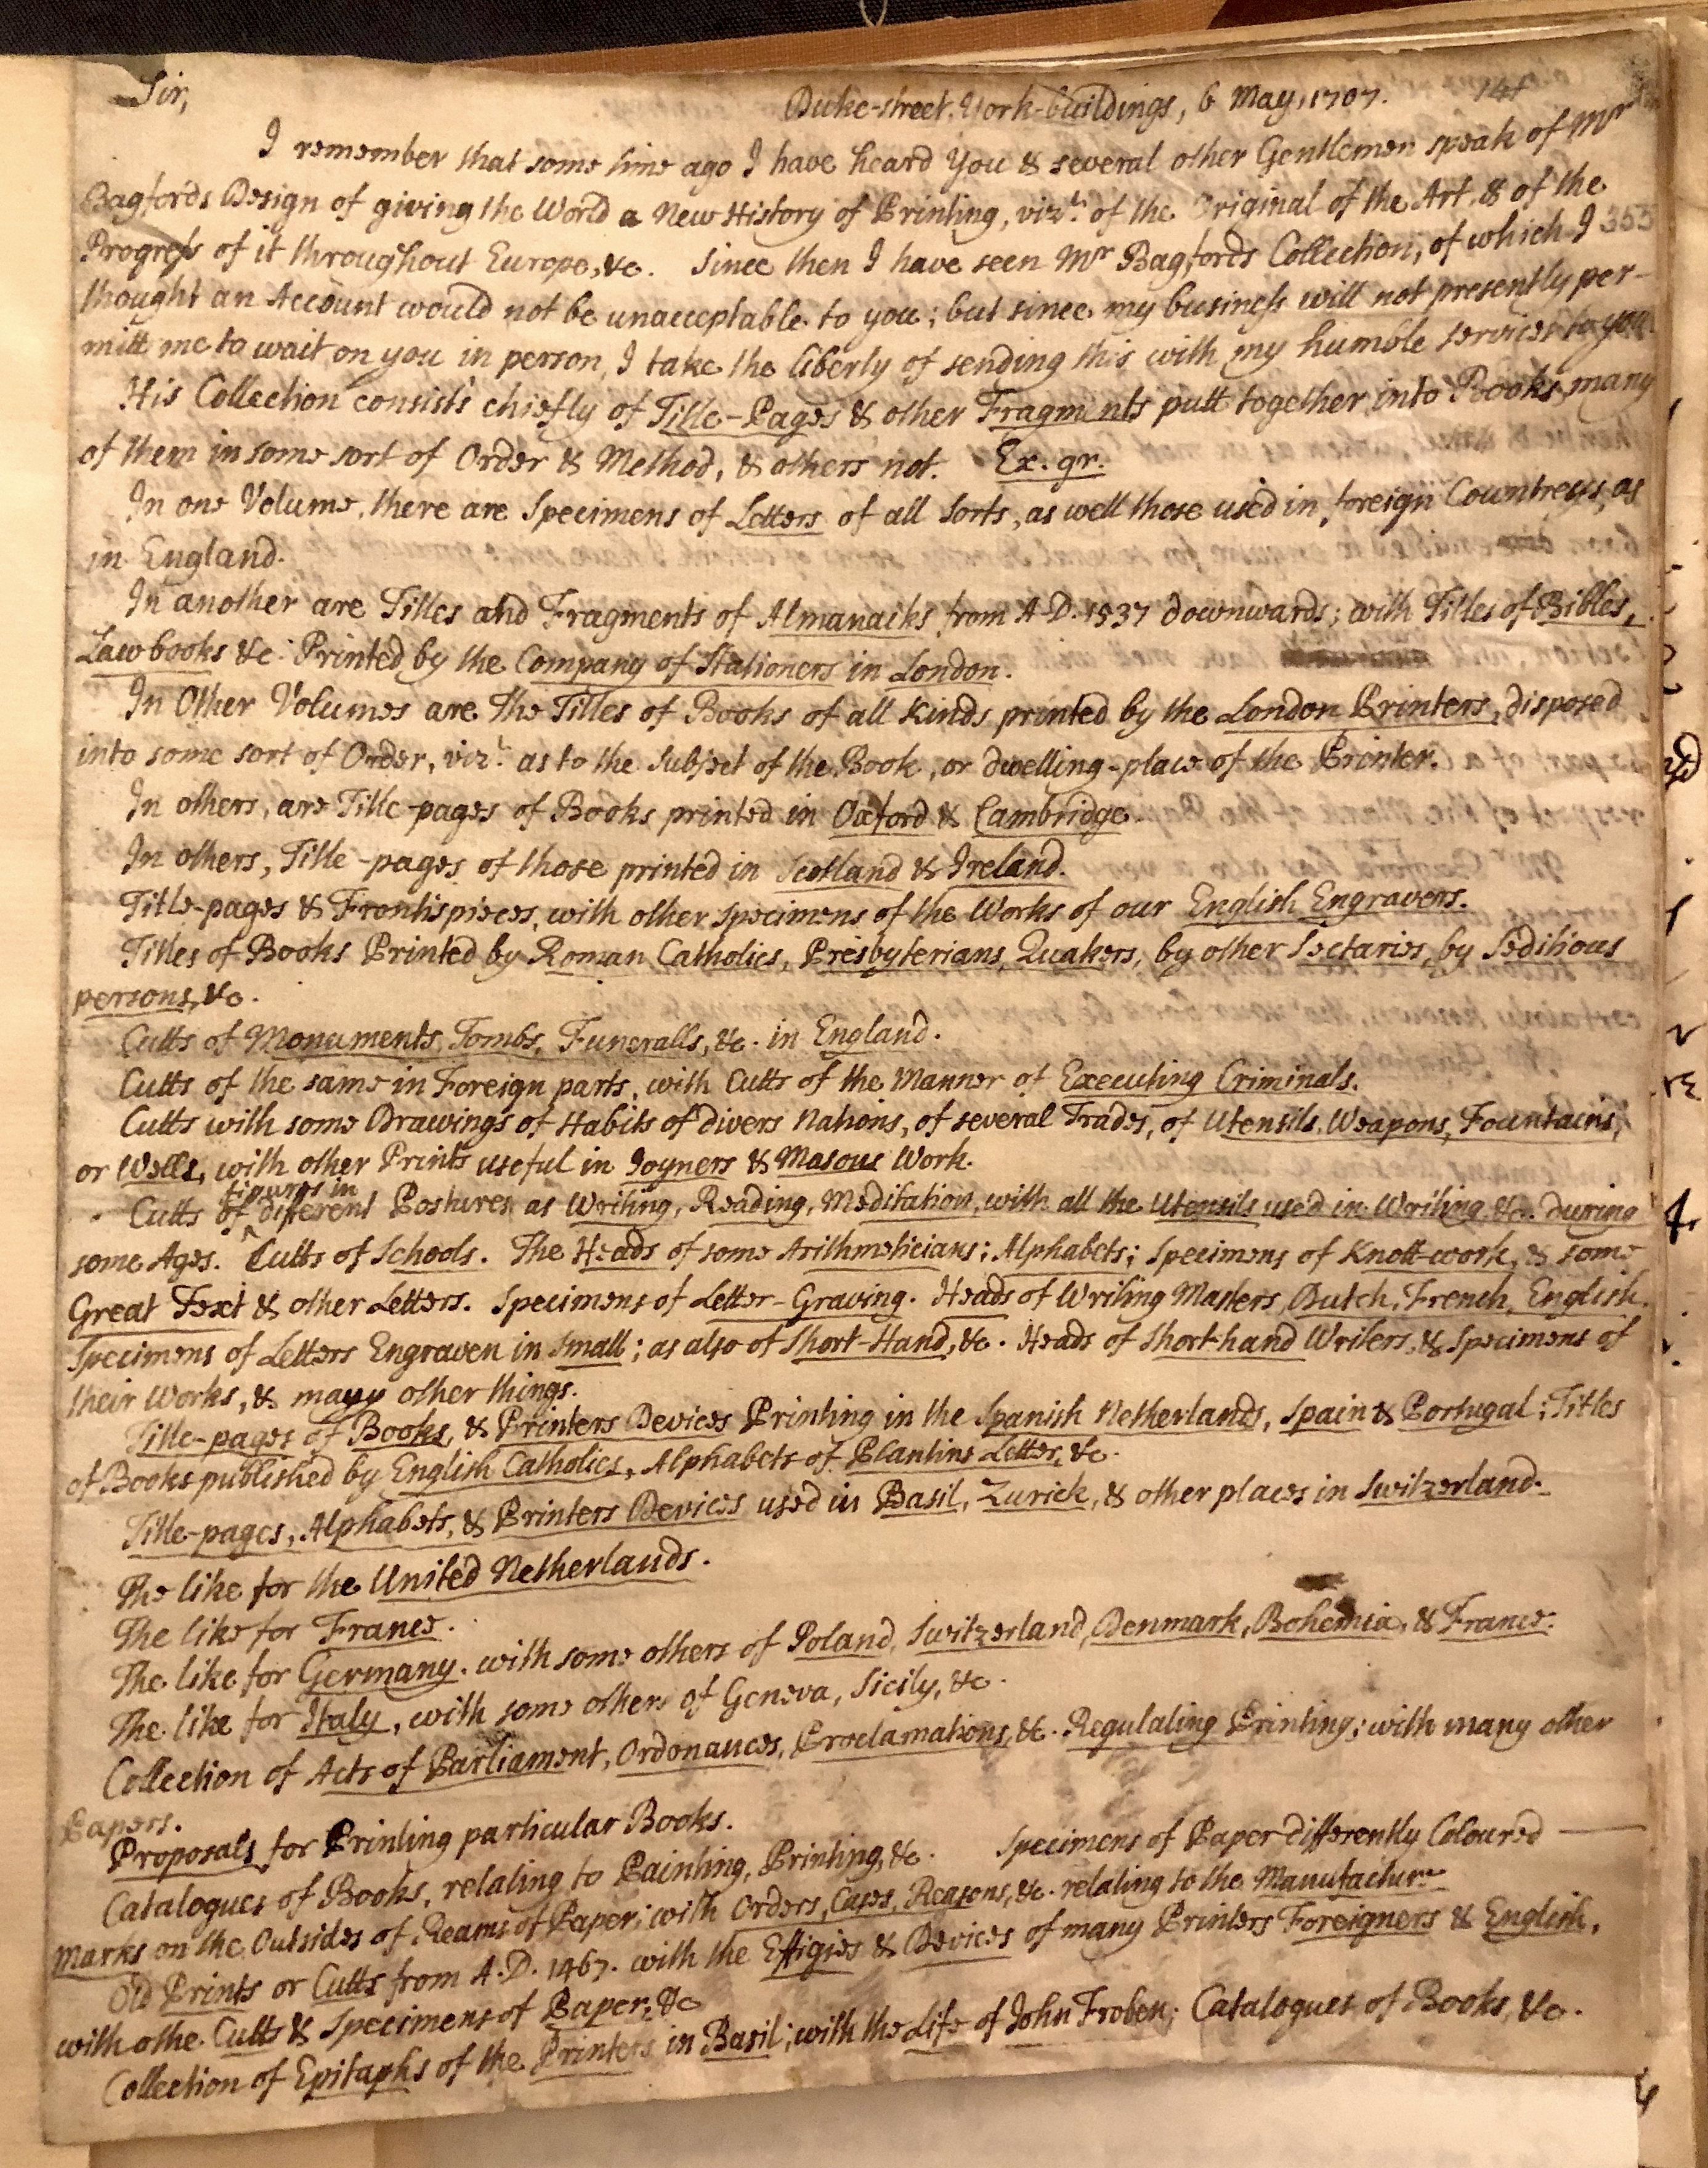 Sir,
Duke-street, York-buildings, 6 May, 1707.
I remember that some time ago I have heard You & several other Gentlemen speak of Mr
Bagfords Design of giving the World a New History of Printing, vizt. of the Original of the Art, & of the
Progress of it throughout Europe, &c. Since then I have seen Mr Bagfords Collection, of which I 353
thought an Account would not be unacceptable to you; but since my business will not presently per-
mitt me to wait on you in person, I take the liberty of sending this with my humble service to you.
His Collection consists chiefly of Title-Pages & other Fragments putt together into Books, many
of them in some sort of Order & Method, & others not. Ex. gr.
In one Volume, there are Specimens of Letters of all Sorts, as well those used in foreign Countreys, as
in England.
In another are Titles and Fragments of Almanacks from A.D. 1537 downwards; with Titles of Bibles,
Lawbooks &c. Printed by the Company of Stationers in London.
In Other Volumes are The Titles of Books of all Kinds printed by the London Printers, disposed
into some sort of Order, vizt. as to the Subject of the Book, or dwelling-place of the Printer.
In others, are Title-pages of Books printed in Oxford & Cambridge.
In others, Title-pages of those printed in Scotland & Ireland.
Title-pages & Frontispieces, with other specimens of the Works of our English Engravers.
Titles of Books Printed by Roman Catholics, Presbyterians, Quakers, by other Sectaries, by Seditious
persons, &c.
Cutts of Monuments, Tombs, Funeralls, &c. in England.
Cutts of the same in Foreign parts, with Cutts of the Manner of Executing Criminals.
Cutts with some Drawings of Habits of divers Nations, of several Trades, of Utensils, Weapons, Fountains,
or Wells, with other Prints useful in Joyners & Masons Work.
figures in
Cutts of different Postures as Writing, Reading, Meditation, with all the Utensils used in Writing, &c. during
some Ages. Cutts of Schools. The Heads of some Arithmeticians; Alphabets; Specimens of Knott-work, & some
Great Text & other Letters. Specimens of Letter-Graving. Heads of Writing Masters, Dutch, French, English.
Specimens of Letters Engraven in Small; as also of Short-Hand, &c. Heads of Short-hand Writers, & Specimens of
their Works, & many other things.
Title-pages of Books, & Printers Devices Printing in the Spanish Netherlands, Spain & Portugal; Titles
of Books published by English Catholics, Alphabets of Plantins Letter, &c.
Title-pages, Alphabets, & Printers Devices used in Basil, Zurick, & other places in Switzerland.
The like for the United Netherlands.
The like for France.
The like for Germany. with some others of Poland, Switzerland, Denmark, Bohemia, & France.
The like for Italy, with some others of Geneva, Sicily, &c.
Collection of Acts of Parliament, Ordonances, Proclamations, &c. Regulating Printing; with many other
Papers.
Proposals for Printing particular Books.
Catalogues of Books, relating to Painting, Printing, &c. Specimens of Paper differently Coloured
Marks on the Outsides of Reams of Paper; with Orders, Cases, Reasons, &c. relating to the Manufacture
Old Prints or Cutts from A.D. 1467. with the Effigies & Devices of many Printers Foreigners & English,
with othe Cutts & Specimens of Paper, &c
Collection of Epitaphs of the Printers in Basil; with the Life of John Froben; Catalogues of Books, &c.